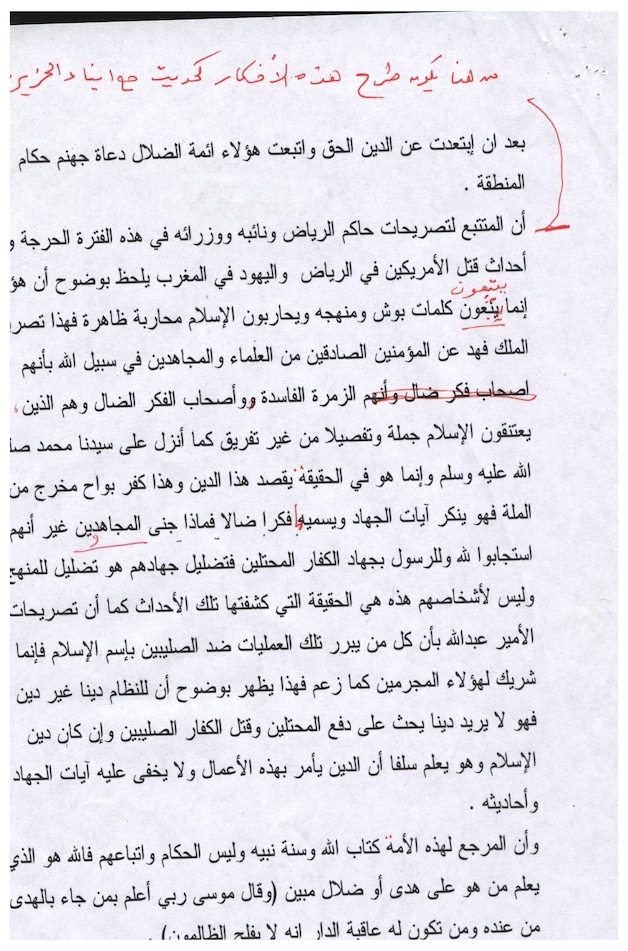 من هنا يكون طرح هذه الأفكار كحديث مع ابناء الجزير
بعد ان إبتعدت عن الدين الحق واتبعت هؤلاء ائمة الضلال دعاة جهنم حكام
المنطقة .
أن المتتبع لتصريحات حاكم الرياض ونائبه ووزرائه في هذه الفترة الحرجة و
أحداث قتل الأمريكين في الرياض واليهود في المغرب يلحظ بوضوح أن هؤ
يتبعون
إنما يتبعون كلمات بوش ومنهجه ويحاربون الإسلام محاربة ظاهرة فهذا تصر
الملك فهد عن المؤمنين الصادقين من العلماء والمجاهدين في سبيل الله بأنهم
اصحاب فكر ضال وأنهم الزمرة الفاسدة ووأصحاب الفكر الضال وهم الذين
يعتنقون الإسلام جملة وتفصيلا من غير تفريق كما أنزل على سيدنا محمد صلـ
الله عليه وسلم وإنما هو في الحقيقة يقصد هذا الدين وهذا كفر بواح مخرج من
الملة فهو ينكر آيات الجهاد ويسميها فكرا ضالا فماذا جنى المجاهدين غير أنهم
استجابوا لله وللرسول بجهاد الكفار المحتلين فتضليل جهادهم هو تضليل للمنهج
وليس لأشخاصهم هذه هي الحقيقة التي كشفتها تلك الأحداث كما أن تصريحات
الأمير عبدالله بأن كل من يبرر تلك العمليات ضد الصليبين بإسم الإسلام فإنما
شريك لهؤلاء المجرمين كما زعم فهذا يظهر بوضوح أن للنظام دينا غير دين
فهو لا يريد دينا يحث على دفع المحتلين وقتل الكفار الصليبين وإن كان دين
الإسلام وهو يعلم سلفا أن الدين يأمر بهذه الأعمال ولا يخفى عليه آيات الجهاد
وأحاديثه .
وأن المرجع لهذه الأمة كتاب الله وسنة نبيه وليس الحكام واتباعهم فالله هو الذي
يعلم من هو على هدى أو ضلال مبين (وقال موسى ربي أعلم بمن جاء بالهدى
من عنده ومن تكون له عاقبة الدار انه لا يفلح الظالمون) .